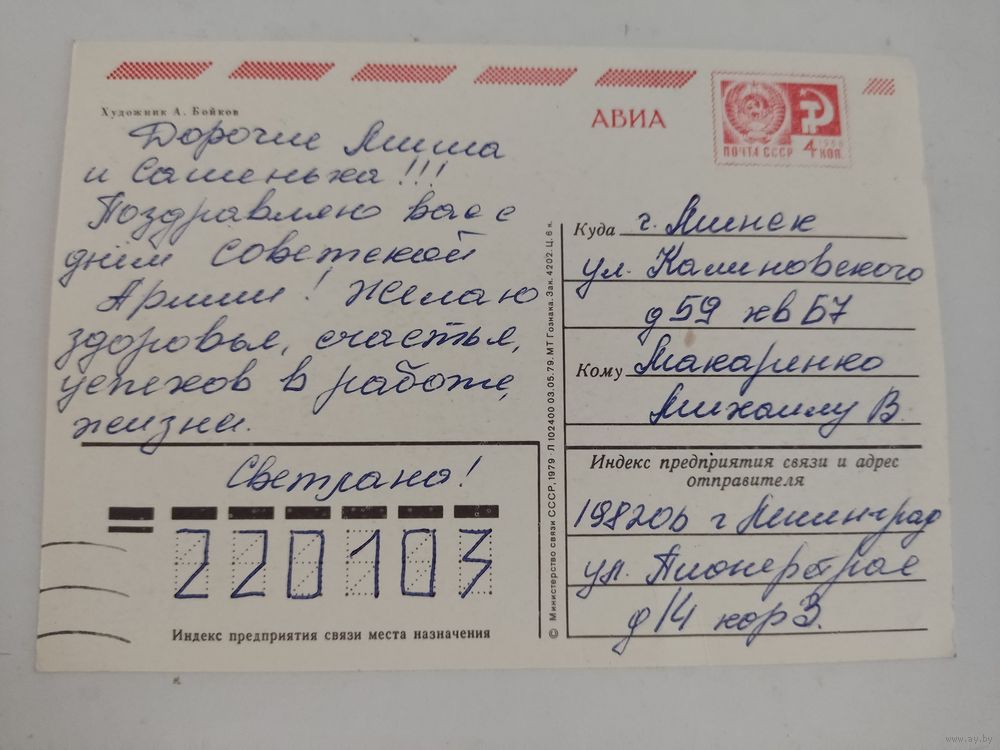 Художник А. Бойков
АВИА
ПОЧТА СССР
1966
4 КОП.
Дорогие Миша
и Сашенька!!!
Поздравляю вас с
днём Советской
Армии! Желаю
здоровья, счастья,
успехов в работе,
жизни.
Светлана!
220103
Индекс предприятия связи места назначения
© Министерство связи СССР, 1979 Л 102400 03.05.79. МТ Гознака. Зак. 4202. Ц. 6 к.
Куда г. Минск
ул. Калиновского
д 59 кв 57
Кому Макаренко
Михаилу В.
Индекс предприятия связи и адрес
отправителя
198206 г Ленинград
ул. Пионерстроя
д 14 кор 3.
www.ay.by